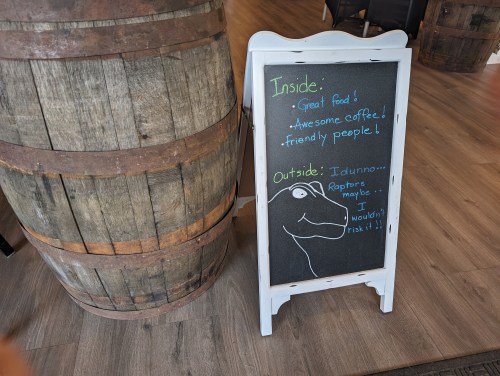 Inside:
• Great food!
• Awesome coffee!
• friendly people!
Outside: Idunno...
Raptors
maybe...
I
wouldn't
risk it!!